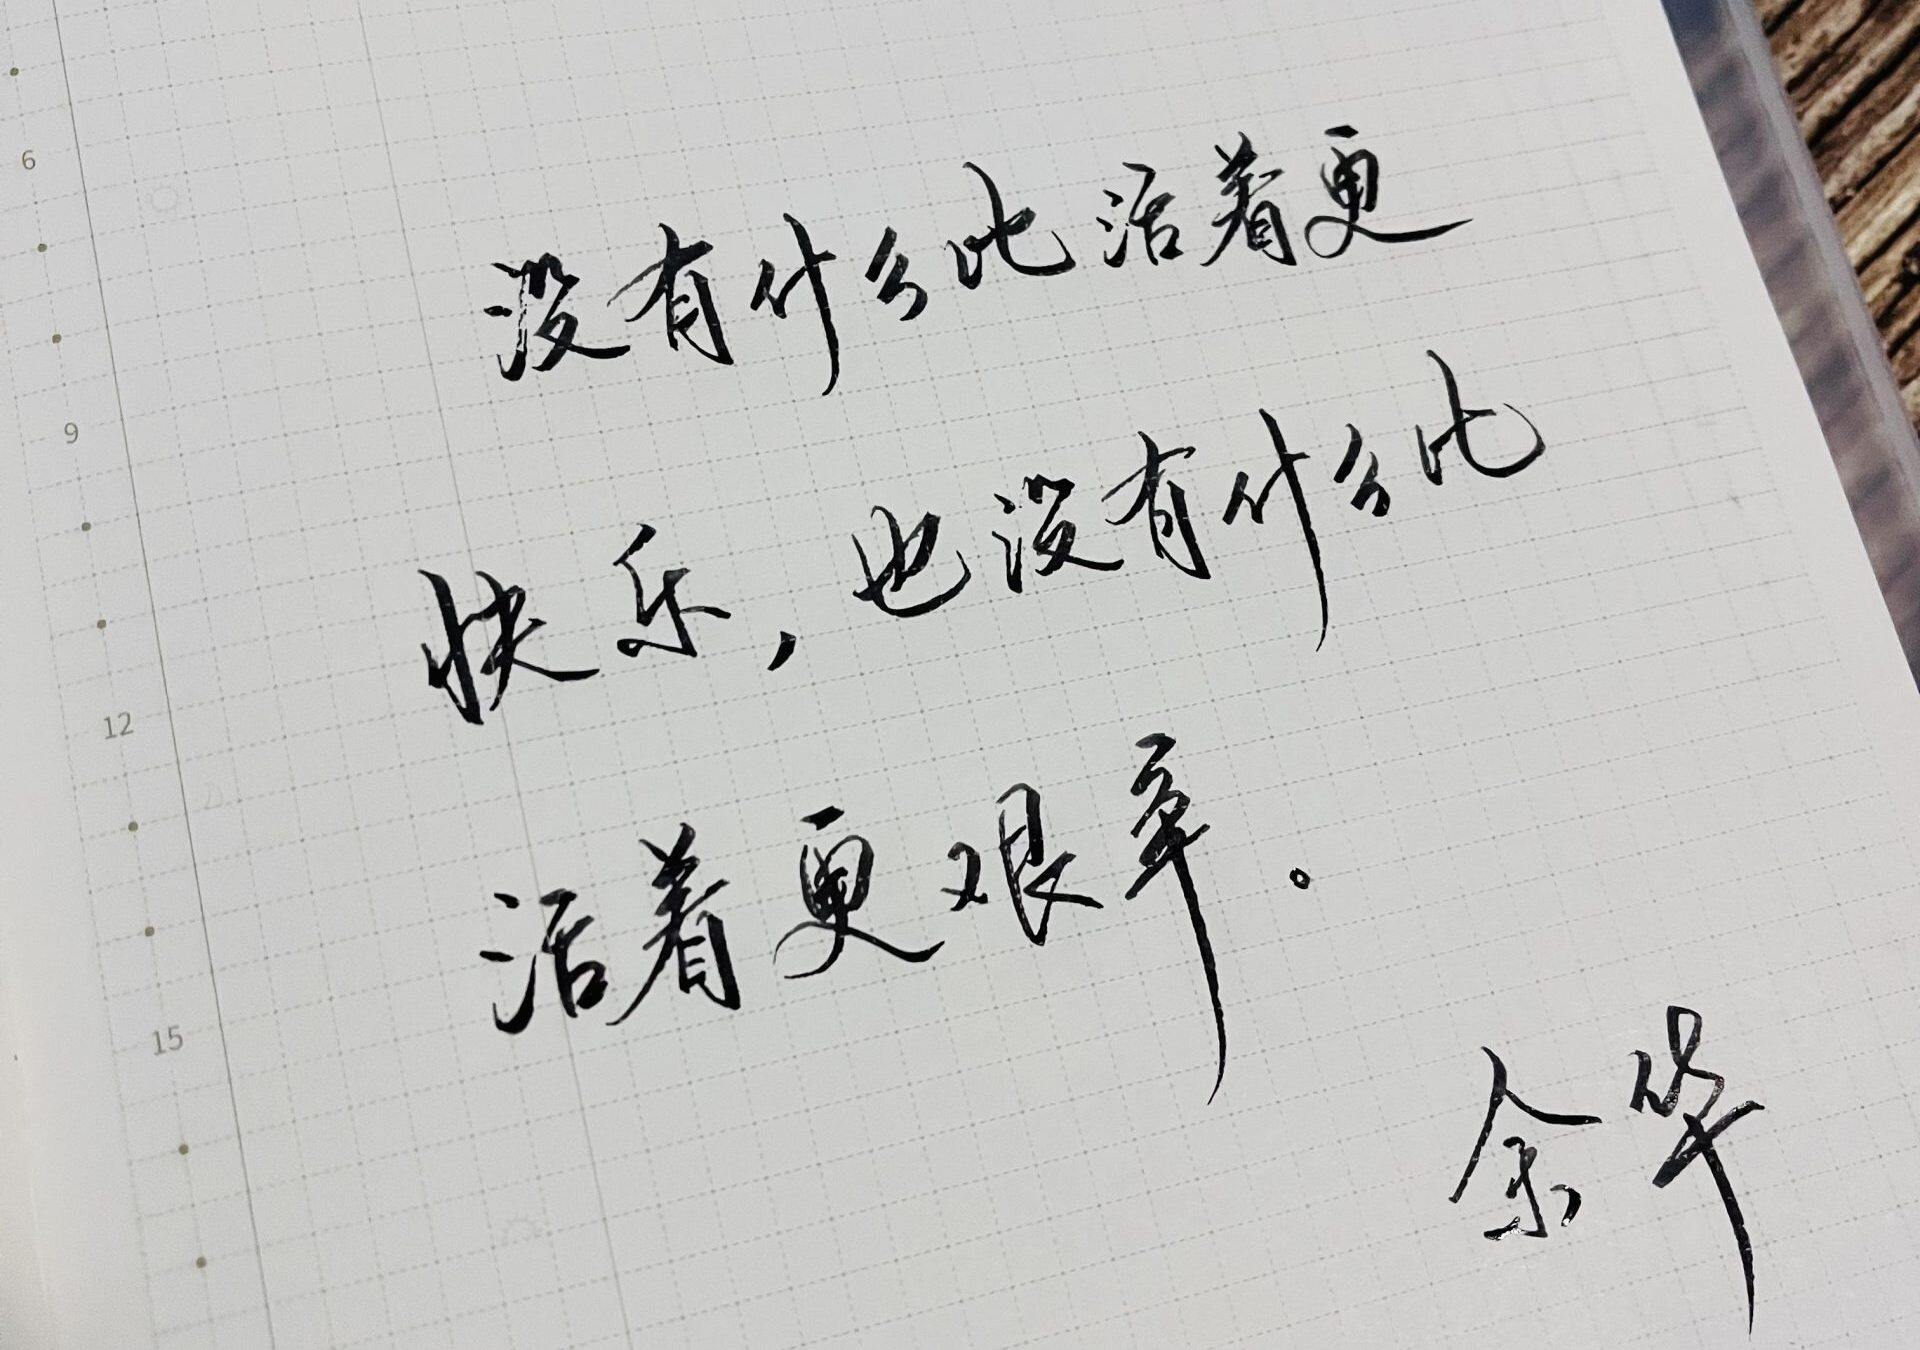 没有什么比活着更
快乐，也没有什么比
活着更艰辛。
余华
6
9
12
15